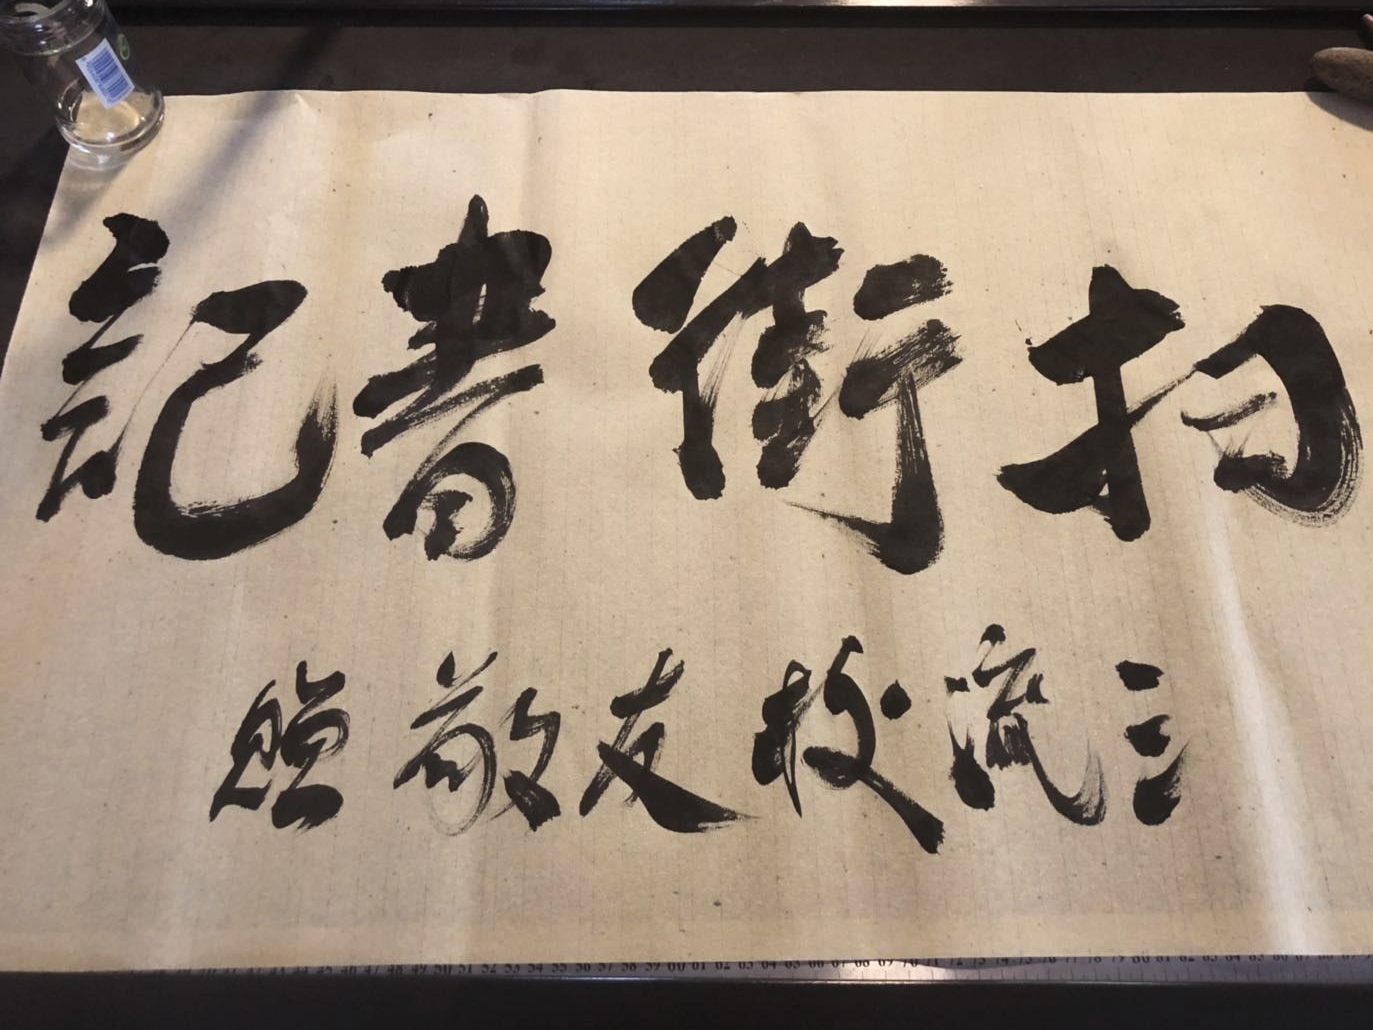 扫街書記
三流校友敬贈